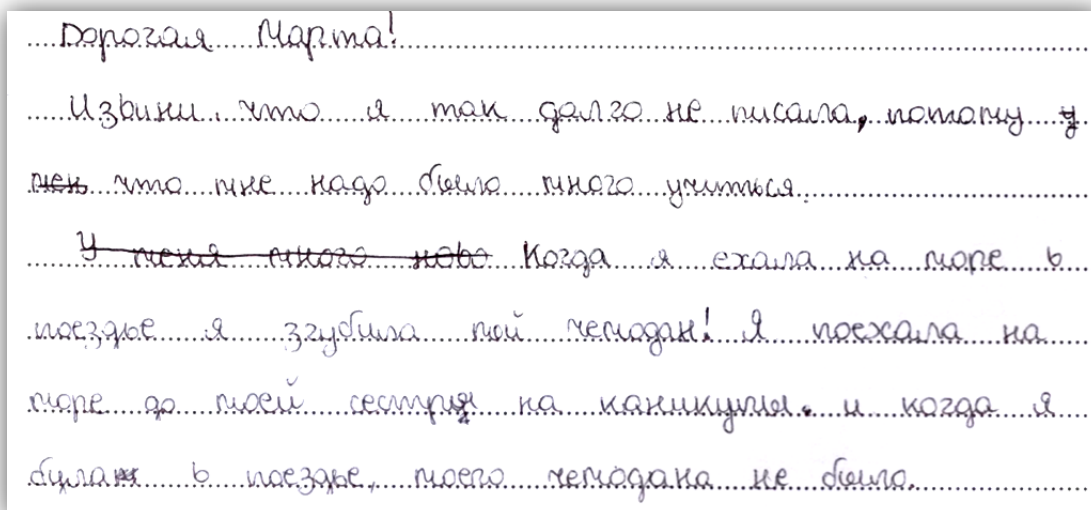 Дорогая Марта!
Извини, что я так долго не писала, потому у
мен что мне надо было много учиться.
У меня много ново Когда я ехала на море в
поездье я згубила мой чемодан! Я поехала на
море до моей сестры на каникулы. и когда я
была в поездье, моего чемодана не было.